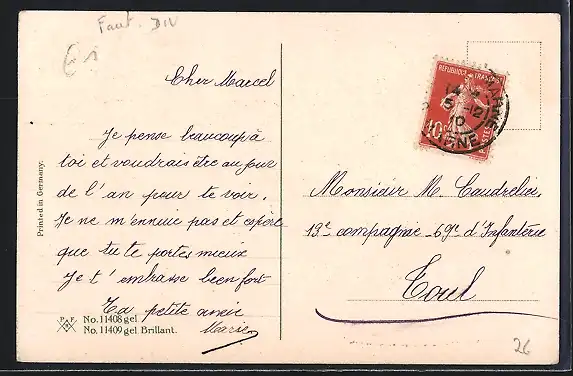 Faut. DIV
Cher Marcel
Je pense beaucoup à
toi et voudrais être au jour
de l'an pour te voir.
Je ne m'ennuie pas et espère
que tu te portes mieux
Je t'embrasse been fort
Ta petite amie
Marie
Printed in Germany.
P F
No. 11408 gel.
No. 11409 gel Brillant.
REPUBLIQUE FRANÇAISE
10
POSTES
MARNE
5 -12
10
MARNE
Monsieur M. Caudrelier,
19e compagnie - 69e d'Infanterie
Toul
26